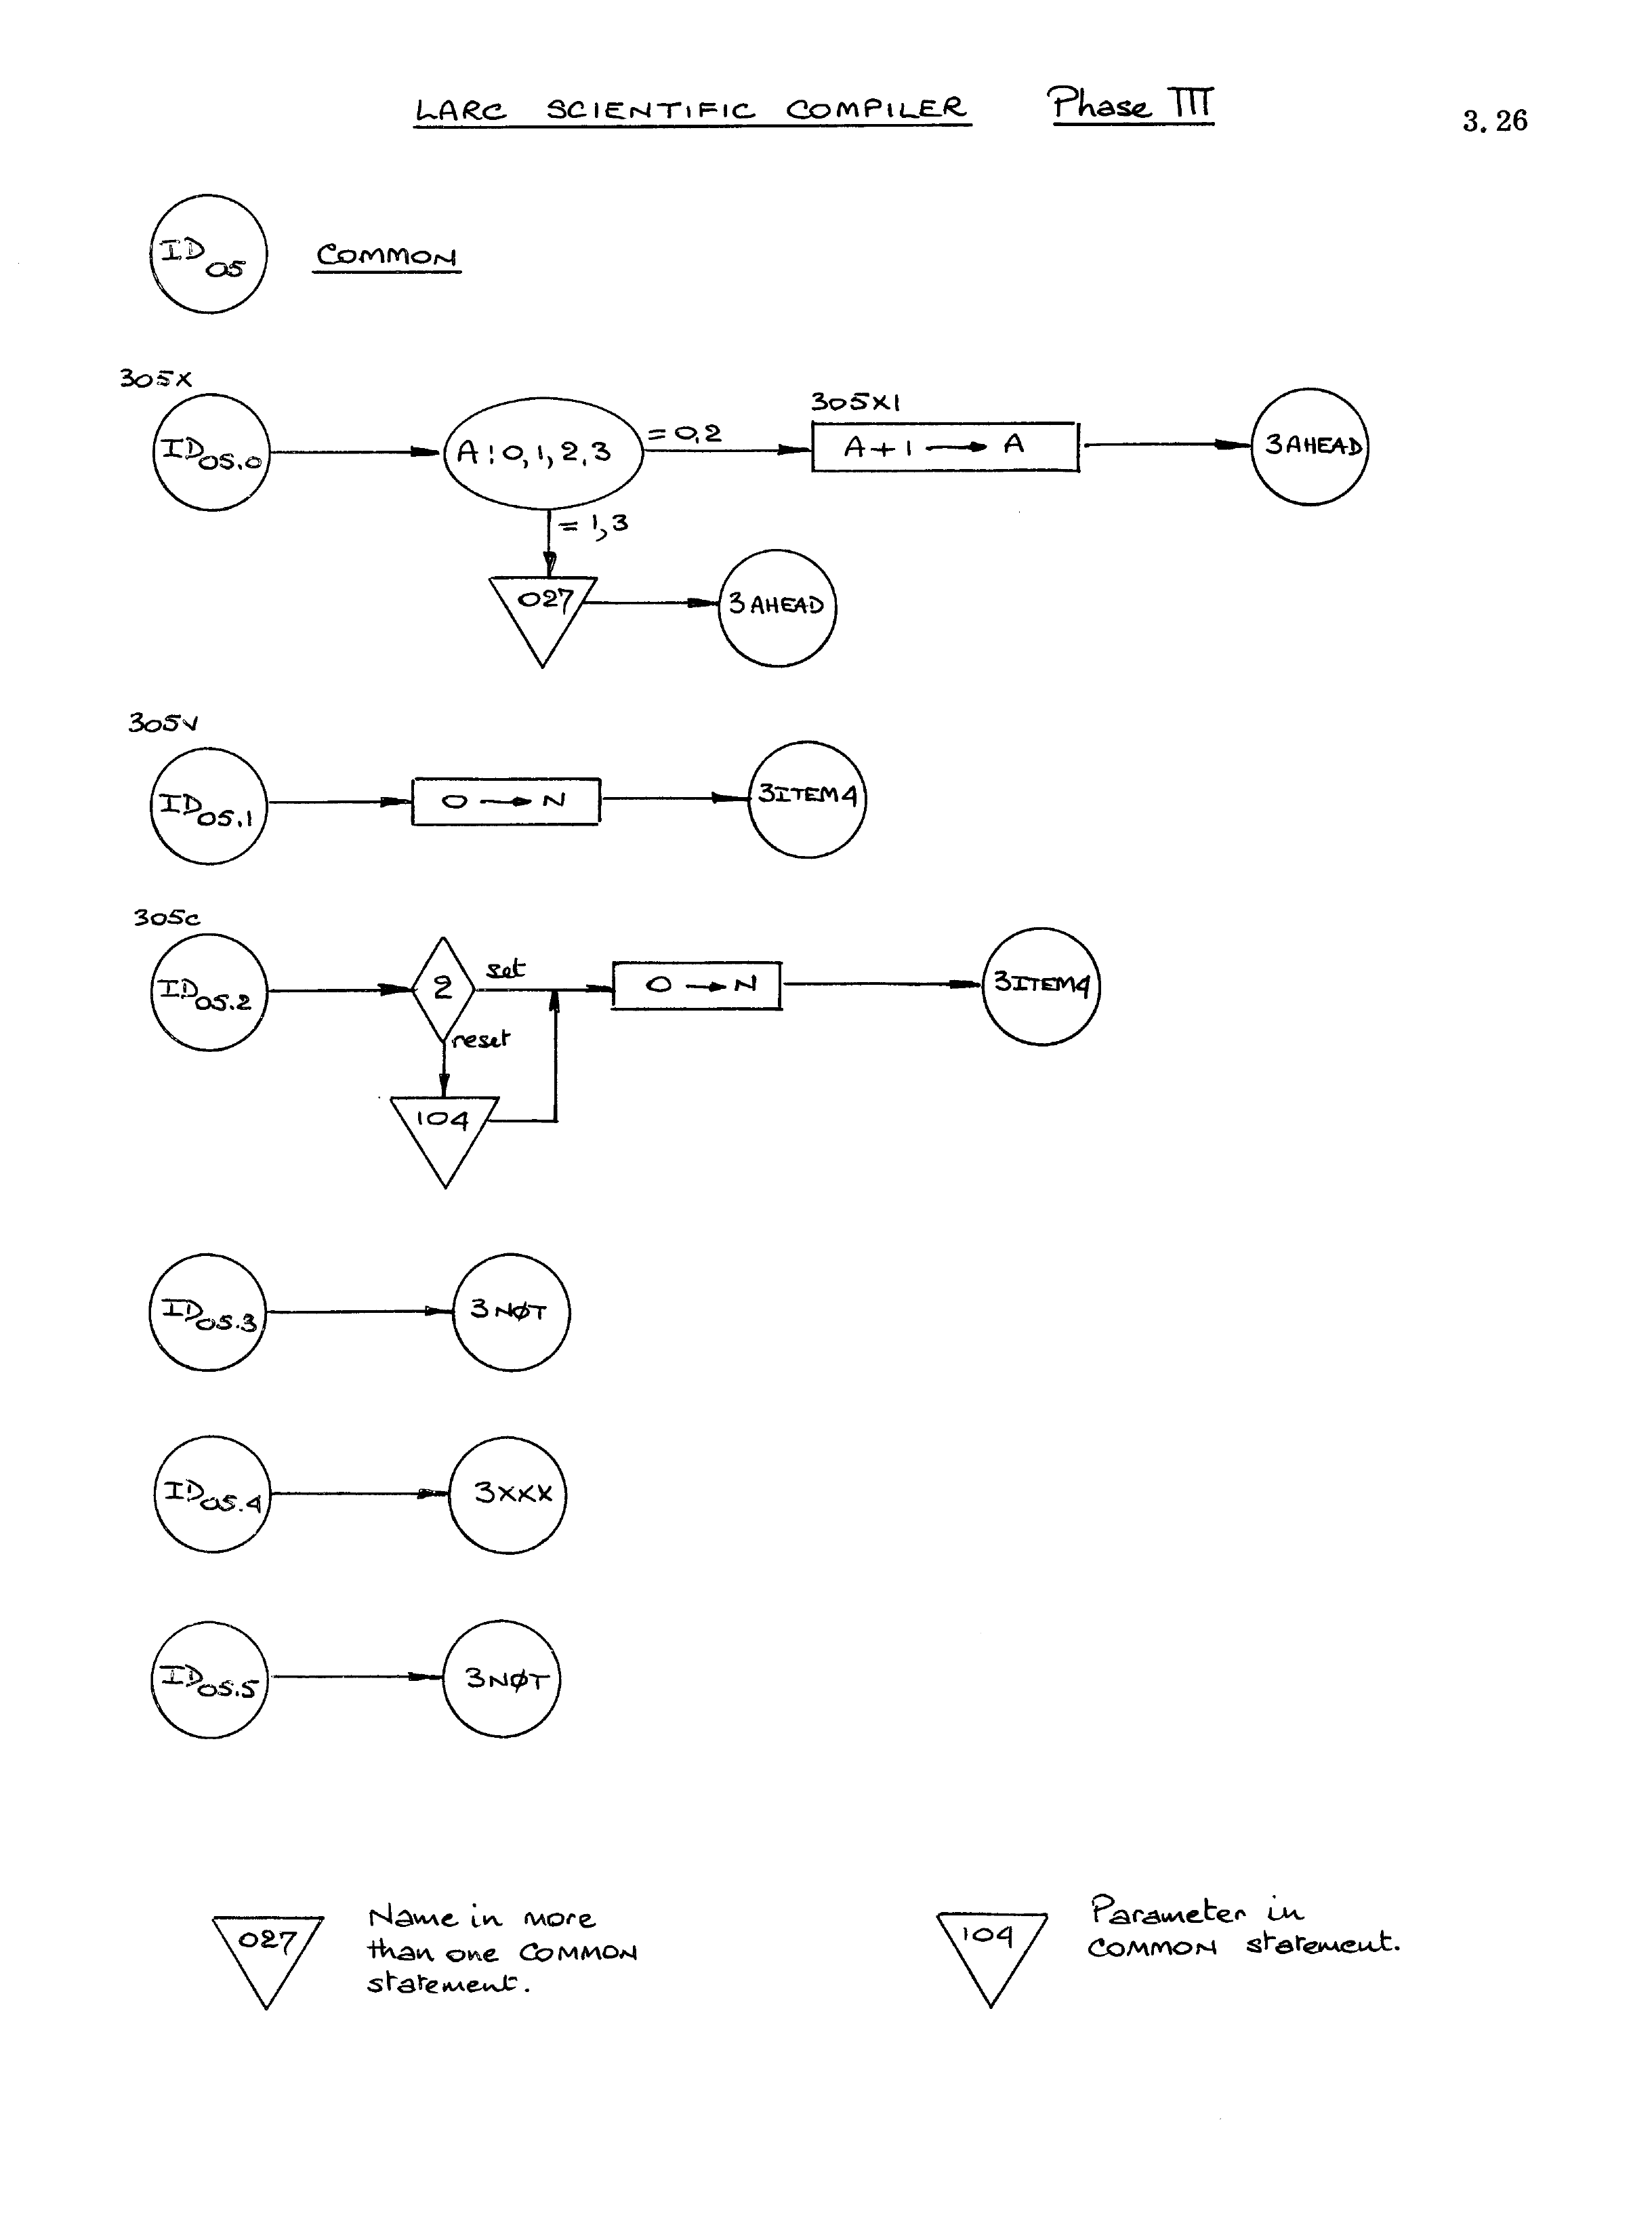 LARC SCIENTIFIC COMPILER Phase III
3.26
ID05 COMMON
305X
ID05.0 A:0,1,2,3 =0,2 305X1 A+1 → A 3AHEAD
=1,3
027 3AHEAD
305V
ID05.1 0 → N 3ITEM4
305C
ID05.2 2 set 0 → N 3ITEM4
reset
104
ID05.3 3NØT
ID05.4 3XXX
ID05.5 3NØT
027 Name in more
than one COMMON
statement.
104 Parameter in
COMMON statement.